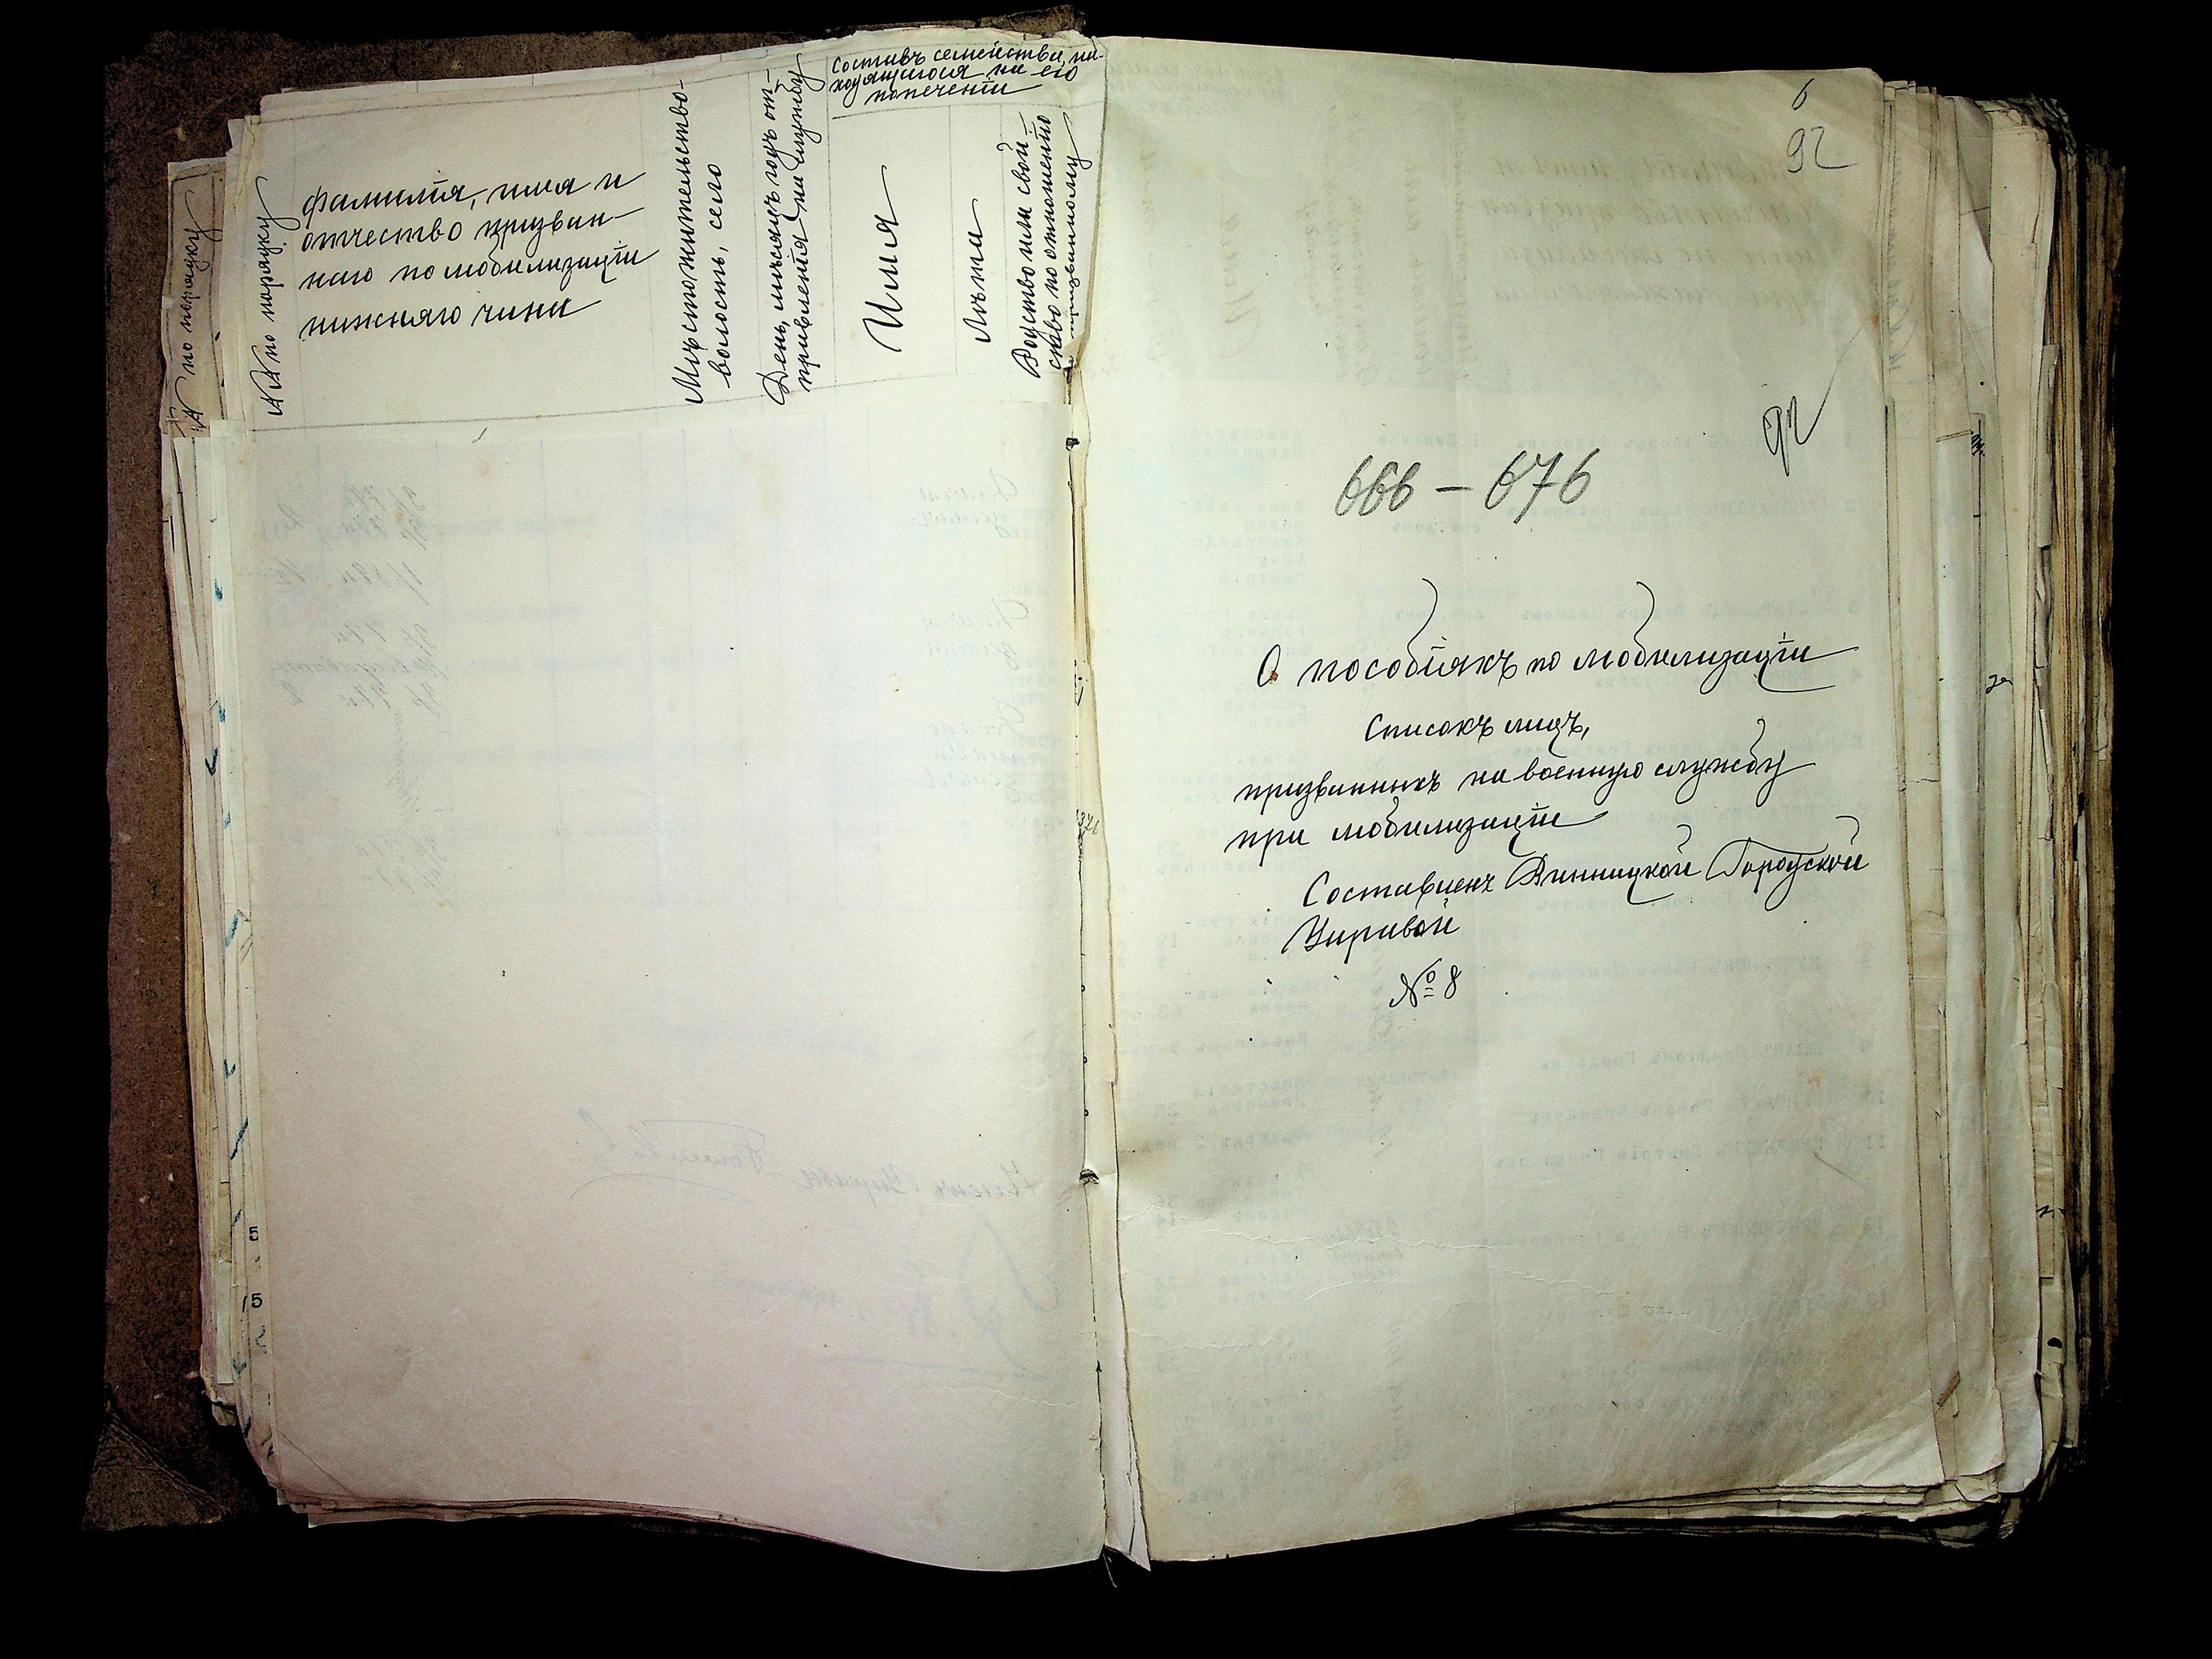 № по порядку
№№ по порядку
фамилія, имя и
отчество призван-
наго по мобилизаціи
нижняго чина
Мѣстожительство-
волость, село
День, мѣсяцъ годъ от-
правленія на службу
Составъ семейства, на-
ходящагося на его
попеченіи
Имя
Лѣта
Родство или свой-
ство по отношенію
призванному
6
92
92
666 - 676
О пособіяхъ по мобилизаціи
Списокъ лицъ,
призванныхъ на военную службу
при мобилизаціи
Составленъ Винницкой Городской
Управой
№ 8
5
15